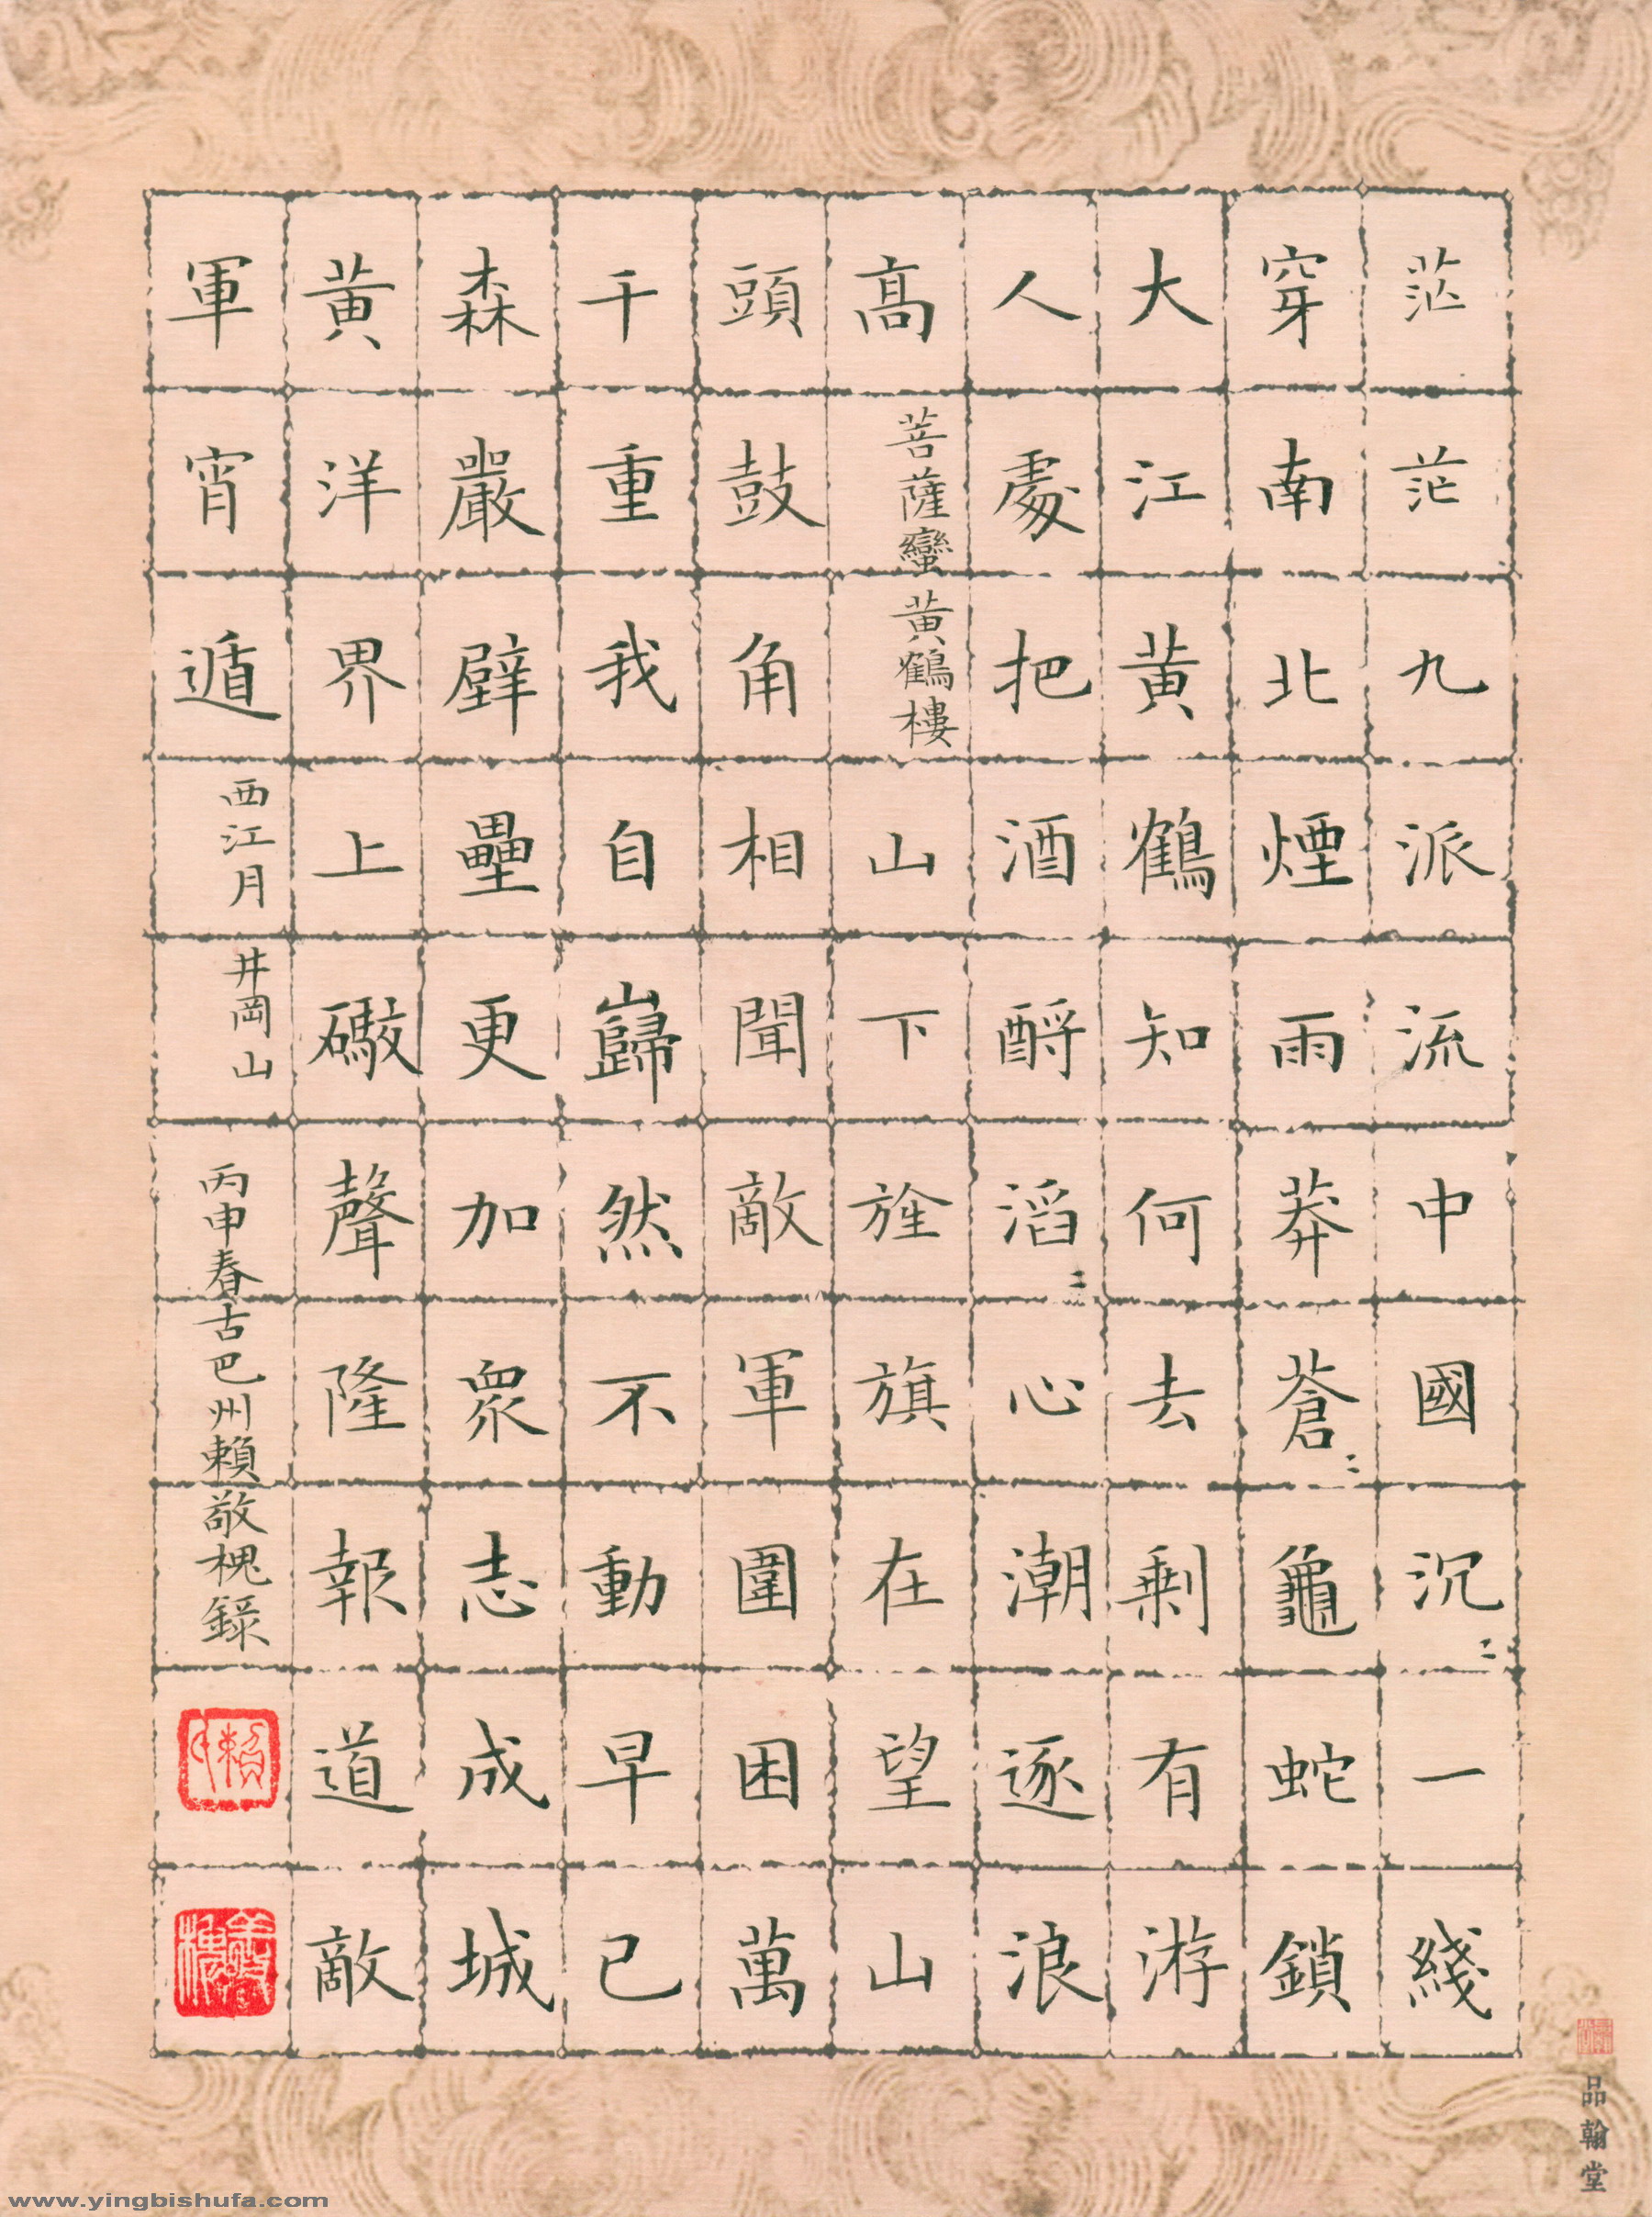 茫茫九派流中國沉〻一綫
穿南北煙雨莽蒼〻龜蛇鎖
大江黃鶴知何去剩有游
人處把酒酹滔〻心潮逐浪
高菩薩蠻黃鶴樓山下旌旗在望山
頭鼓角相聞敵軍圍困萬
千重我自巋然不動早已
森嚴壁壘更加衆志成城
黃洋界上礮聲隆報道敵
軍宵遁西江月井岡山
丙申春古巴州賴敬槐録
品翰堂
www.yingbishufa.com